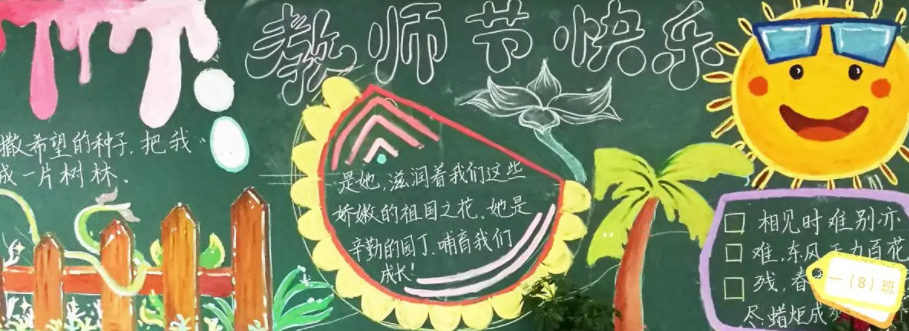 教师节快乐
撒希望的种子，把我
成一片树林．
是她，滋润着我们这些
娇嫩的祖国之花．她是
辛勤的园丁．哺育我们
成长！
相见时难别亦
难，东风无力百花
残．春
尽蜡炬成
一（8）班